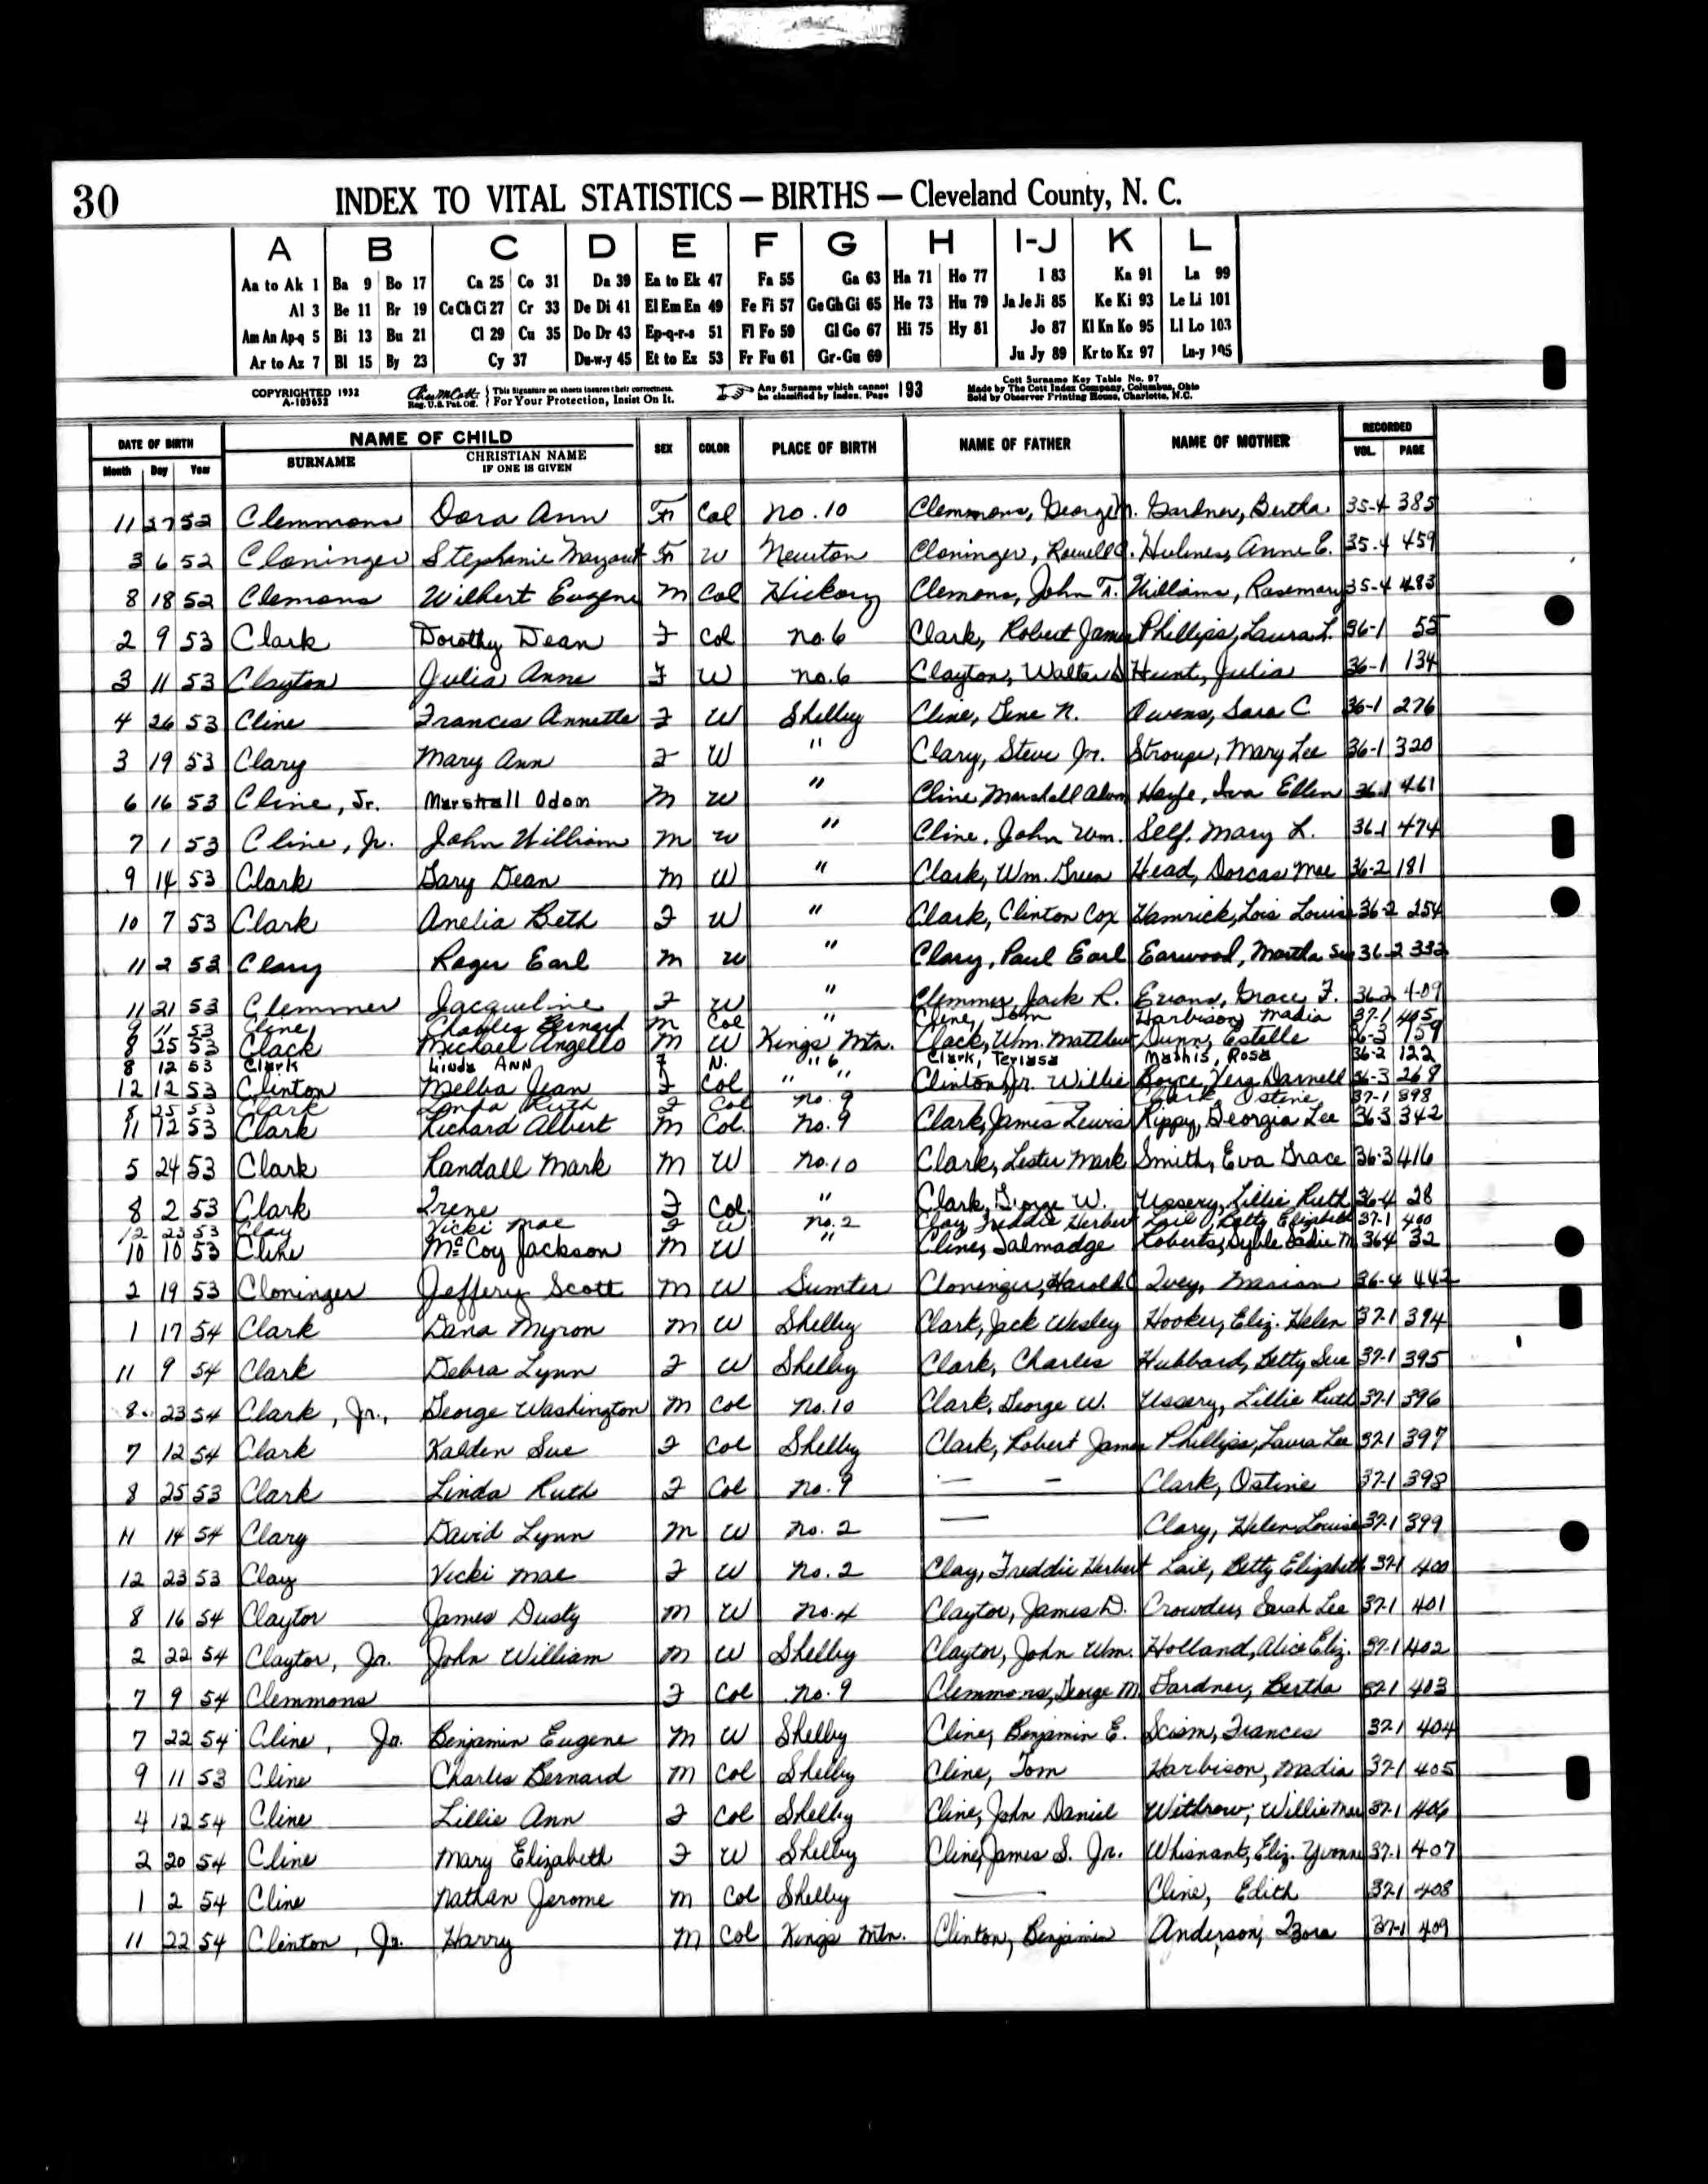 30 INDEX TO VITAL STATISTICS — BIRTHS — Cleveland County, N. C.
A B C D E F G H I-J K L
Aa to Ak 1 Ba 9 Bo 17 Ca 25 Co 31 Da 39 Ea to Ek 47 Fa 55 Ga 63 Ha 71 Ho 77 I 83 Ka 91 La 99
Al 3 Be 11 Br 19 Ce Ch Ci 27 Cr 33 De Di 41 El Em En 49 Fe Fi 57 Ge Gh Gi 65 He 73 Hu 79 Ja Je Ji 85 Ke Ki 93 Le Li 101
Am An Ap-q 5 Bi 13 Bu 21 Cl 29 Cu 35 Do Dr 43 Ep-q-r-s 51 Fl Fo 59 Gl Go 67 Hi 75 Hy 81 Jo 87 Kl Kn Ko 95 Ll Lo 103
Ar to Az 7 Bl 15 By 23 Cy 37 Du-w-y 45 Et to Ez 53 Fr Fu 61 Gr-Gu 69 Ju Jy 89 Kr to Kz 97 Lu-y 105
COPYRIGHTED 1932 A-103652 Reg. U.S. Pat. Off. This Signature on sheets insures their correctness. For Your Protection, Insist On It. Any Surname which cannot be classified by Index, Page 193 Cott Surname Key Table No. 97 Made by The Cott Index Company, Columbus, Ohio Sold by Observer Printing House, Charlotte, N.C.
DATE OF BIRTH NAME OF CHILD SEX COLOR PLACE OF BIRTH NAME OF FATHER NAME OF MOTHER RECORDED
Month Day Year SURNAME CHRISTIAN NAME IF ONE IS GIVEN VOL. PAGE
11 27 52 Clemmons Dora Ann F Col No. 10 Clemmons, George M. Gardner, Bertha 35-4 385
3 6 52 Cloninger Stephanie Margaret F W Newton Cloninger, Rowell C. Hulmes, Anne E. 35-4 459
8 18 52 Clemons Wilbert Eugene M Col Hickory Clemons, John F. Williams, Rosemary 35-4 483
2 9 53 Clark Dorothy Dean F Col No. 6 Clark, Robert James Phillips, Laura L. 36-1 55
3 11 53 Clayton Julia Anne F W No. 6 Clayton, Walter D Hunt, Julia 36-1 134
4 26 53 Cline Frances Annette F W Shelby Cline, Gene N. Owens, Sara C. 36-1 276
3 19 53 Clary Mary Ann F W " Clary, Steve Jr. Stroupe, Mary Lee 36-1 320
6 16 53 Cline, Jr. Marshall Odom M W " Cline Marshall Hoyle, Iva Ellen 36-1 461
7 1 53 Cline, Jr. John William M W " Cline, John Wm. Self, Mary L. 36-1 474
9 14 53 Clark Gary Dean M W " Clark, Wm. Green Head, Dorcas Mae 36-2 181
10 7 53 Clark Anelia Beth F W " Clark, Clinton Cox Hamrick, Lois Louise 36-2 254
11 2 53 Clary Roger Earl M W " Clary, Paul Earl Earwood, Martha Sue 36-2 332
11 21 53 Clemmer Jacqueline F W " Clemmer, Jack R. Evans, Grace F. 36-2 409
9 11 53 Cline Charles Bernard M Col " Cline, Tom Harbison, Madia 37-1 405
8 25 53 Clack Michael Angello M W Kings Mtn. Clack, Wm. Matthew Dunn, Estelle 36-3 159
8 12 53 Clark Linda ANN F N. " 6 Clark, Teriasa Mathis, Rosa 36-2 122
12 12 53 Clinton Melba Jean F Col " " Clinton Jr. Willie Boyce, Vera Darnell 36-3 268
8 25 53 Clark Linda Ruth F Col No. 9 — — Clark, Ostine 37-1 398
11 12 53 Clark Richard Albert M Col. No. 9 Clark, James Lewis Rippy, Georgia Lee 36-3 342
5 24 53 Clark Randall Mark M W No. 10 Clark, Lester Mark Smith, Eva Grace 36-3 416
8 2 53 Clark Irene F Col. " Clark, George W. Ussery, Lillie Ruth 36-4 28
12 23 53 Clay Vicki Mae F W No. 2 Clay, Freddie Herbert Lail, Betty Elizabeth 37-1 400
10 10 53 Cline McCoy Jackson M W " Cline, Talmadge Roberts, Sadie M 36-4 32
2 19 53 Cloninger Jeffery Scott M W Sumter Cloninger, Harold C Ivey, Marian 36-4 442
1 17 54 Clark Dana Myron M W Shelby Clark, Jack Wesley Hooker, Eliz. Helen 37-1 394
11 9 54 Clark Debra Lynn F W Shelby Clark, Charles Hubbard, Betty Sue 37-1 395
8 23 54 Clark, Jr., George Washington M Col No. 10 Clark, George W. Ussery, Lillie Ruth 37-1 396
7 12 54 Clark Kalden Sue F Col Shelby Clark, Robert James Phillips, Laura Lee 37-1 397
8 25 53 Clark Linda Ruth F Col No. 9 — — Clark, Ostine 37-1 398
11 14 54 Clary David Lynn M W No. 2 — Clary, Helen Louise 37-1 399
12 23 53 Clay Vicki Mae F W No. 2 Clay, Freddie Herbert Lail, Betty Elizabeth 37-1 400
8 16 54 Claytor James Dusty M W No. 4 Claytor, James D. Crowder, Sarah Lee 37-1 401
2 22 54 Claytor, Jr. John William M W Shelby Claytor, John Wm. Holland, Alice Eliz. 37-1 402
7 9 54 Clemmons F Col No. 9 Clemmons, George M. Gardner, Bertha 37-1 403
7 22 54 Cline, Jr. Benjamin Eugene M W Shelby Cline, Benjamin E. Scism, Frances 37-1 404
9 11 53 Cline Charles Bernard M Col Shelby Cline, Tom Harbison, Madia 37-1 405
4 12 54 Cline Lillie Ann F Col Shelby Cline, John Daniel Withrow, Willie Mae 37-1 406
2 20 54 Cline Mary Elizabeth F W Shelby Cline, James S. Jr. Whisnant, Eliz. Yvonne 37-1 407
1 2 54 Cline Nathan Jerome M Col Shelby — Cline, Edith 37-1 408
11 22 54 Clinton, Jr. Harry M Col Kings Mtn. Clinton, Benjamin Anderson, Izora 37-1 409